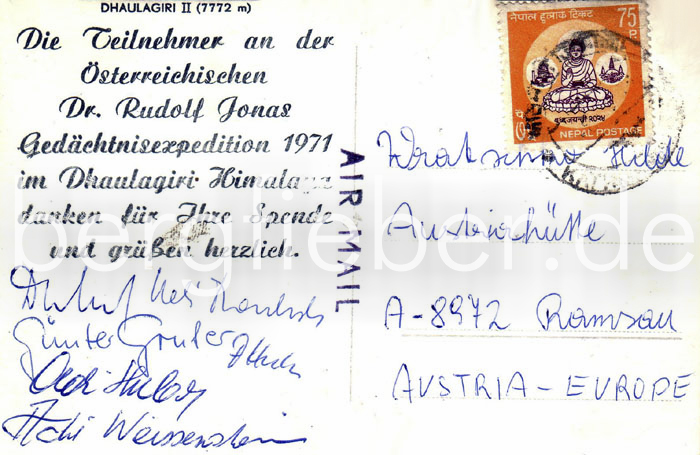 DHAULAGIRI II (7772 m)
Die Teilnehmer an der
Österreichischen
Dr. Rudolf Jonas
Gedächtnisexpedition 1971
im Dhaulagiri Himalaya
danken für Ihre Spende
und grüßen herzlich.
Günter Gruber
Adi Huber
Adi Weissensteiner
AIR MAIL
नेपाल हुलाक टिकट
75
P.
बुद्ध जयन्ती २०२४
NEPAL POSTAGE
Hilde
Austriahütte
A-8972 Ramsau
AUSTRIA-EUROPE
berglieber.de